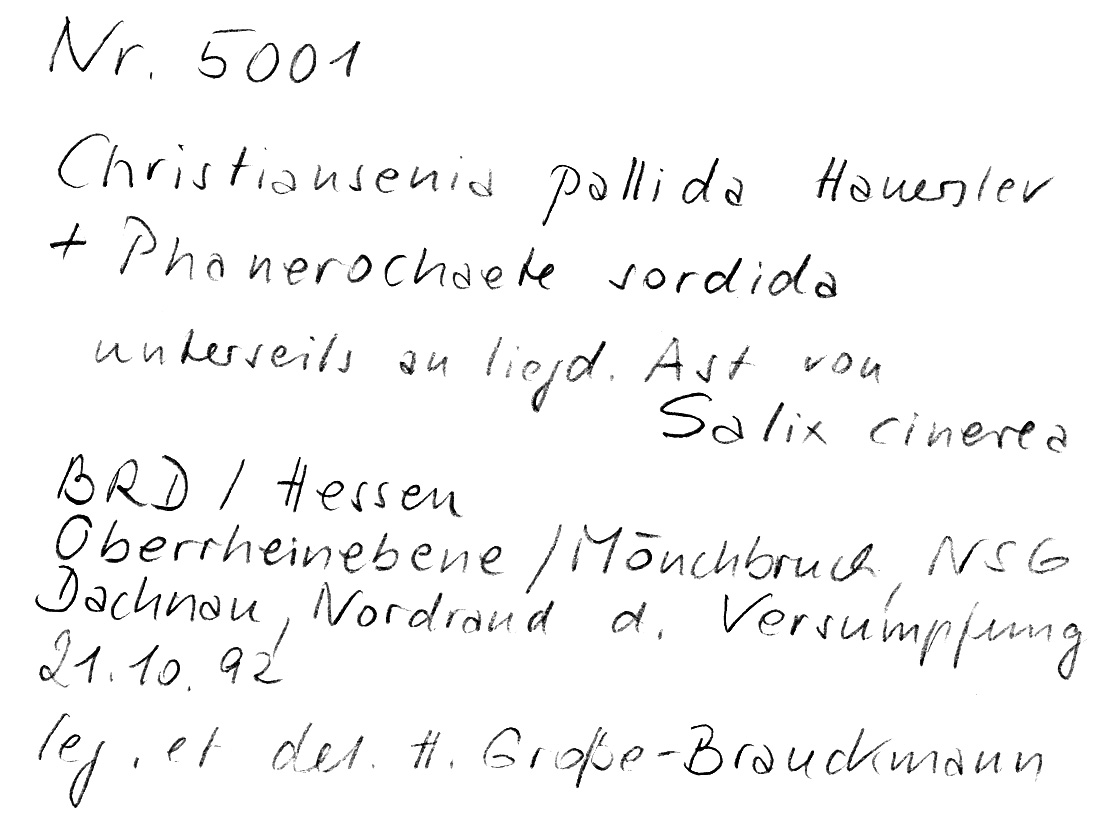 Nr. 5001
Christiansenia pallida Hauerslev
+ Phanerochaete sordida
unterseits an liegd. Ast von
Salix cinerea
BRD / Hessen
Oberrheinebene / Mönchbruch, NSG
Dachnau, Nordrand d. Versumpfung
21.10.92
leg. et det. H. Große-Brauckmann